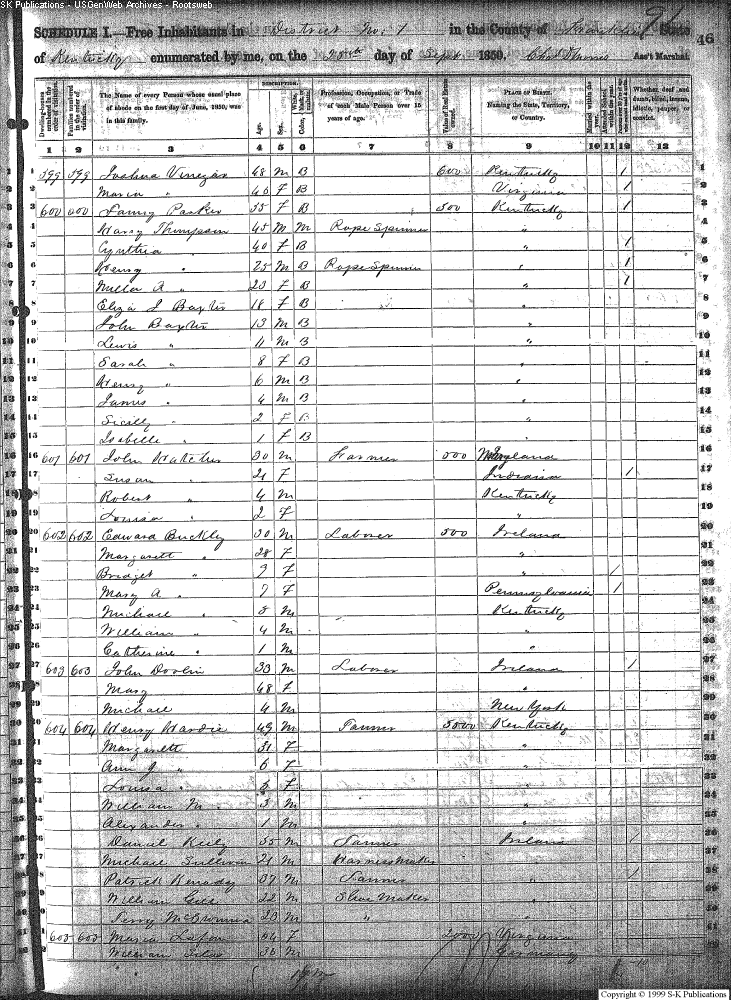 SK Publications - USGenWeb Archives - Rootsweb
91
46
SCHEDULE I.—Free Inhabitants in District No. 1 in the County of Franklin State
of Kentucky enumerated by me, on the 20th day of Sept 1850. Ass't Marshal.
Dwelling-houses numbered in the order of visitation.
Families numbered in the order of visitation.
The Name of every Person whose usual place of abode on the first day of June, 1850, was in this family.
DESCRIPTION.
Age.
Sex.
Color, White, black, or mulatto.
Profession, Occupation, or Trade of each Male Person over 15 years of age.
Value of Real Estate owned.
PLACE OF BIRTH. Naming the State, Territory, or Country.
Married within the year.
Attended School within the year.
Whether deaf and dumb, blind, insane, idiotic, pauper, or convict.
1 2 3 4 5 6 7 8 9 10 11 12 13
1 599 599 Joshua 48 M B 600 Kentucky / 1
2 Maria " 46 F B Virginia / 2
3 600 600 Fanny Parker 55 F B 500 Kentucky / 3
4 Harry Thompson 45 M M Rope Spinner " 4
5 Cynthia " 40 F B " / 5
6 Henry " 25 M B Rope Spinner " / 6
7 A " 23 F B " / 7
8 Eliza J Baxter 18 F B " 8
9 John Baxter 13 M B " 9
10 Lewis " 11 M B " 10
11 Sarah " 8 F B " 11
12 Henry " 6 M B " 12
13 James " 4 M B " 13
14 Sicilly " 2 F B " 14
15 Isabella " 1 F B " 15
16 601 601 John 30 M Farmer 500 Maryland 16
17 Susan " 21 F Indiana / 17
18 Robert " 4 M Kentucky 18
19 Louisa " 2 F " 19
20 602 602 Edward Buckley 30 M Laborer 500 Ireland 20
21 Margarett " 28 F " 21
22 Bridget " 9 F " / 22
23 Mary A " 7 F Pennsylvania / 23
24 Michael " 5 M Kentucky 24
25 William " 4 M " 25
26 Catherine " 1 M " 26
27 603 603 John Doolin 33 M Laborer Ireland / 27
28 Mary 48 F " 28
29 Michael 4 M New York 29
30 604 604 Henry Hardie 49 M Tanner 5000 Kentucky 30
31 Margarett 31 F " 31
32 Ann J " 6 F " 32
33 Louisa " F " 33
34 William M " 3 M " 34
35 Alexander " 1 M " 35
36 Daniel Keily 35 M Tanner Ireland / 36
37 Michael Sullivan 21 M Harness Maker " 37
38 Patrick 37 M Tanner " / 38
39 William 22 M Shoe Maker " 39
40 Terry 23 M " " 40
41 605 605 Maria Lafon 54 F 2000 Virginia 41
42 William 36 M Germany 42
Copyright © 1999 S-K Publications